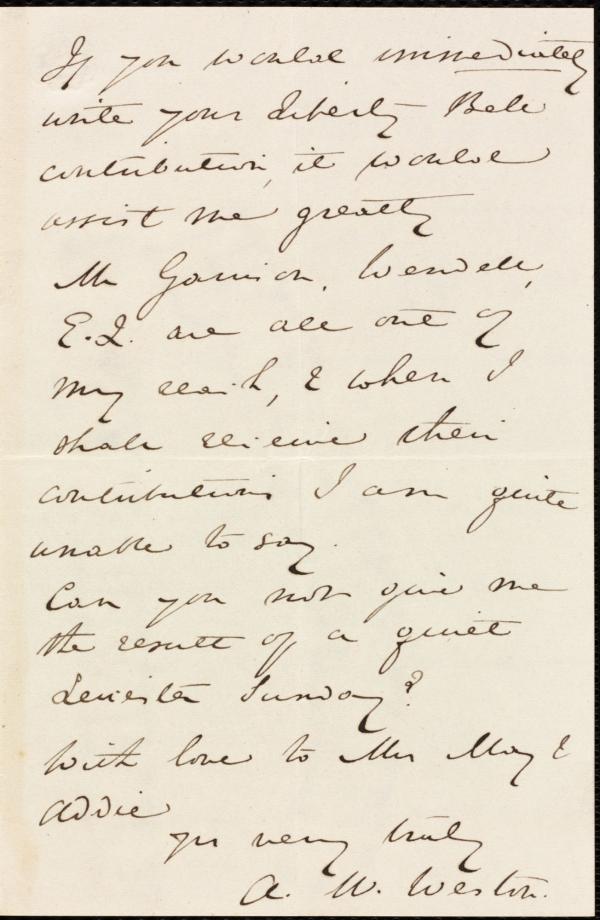 If you would immediately
write your Liberty Bell
contribution, it would
assist me greatly
Mr Garrison, Wendell,
E.Q. are all out of
my reach, & when I
shall receive their
contributions I am quite
unable to say.
Can you not give me
the result of a quiet
Leicester Sunday?
With love to Mrs May &
Addie
yrs very truly
A. W. Weston.